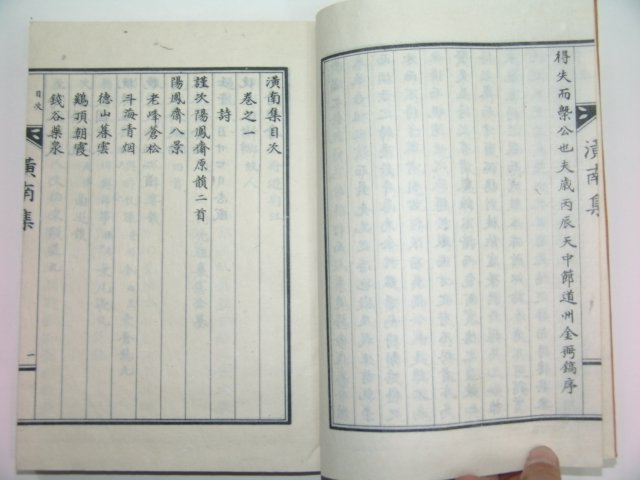 得失而槩公也夫歲丙辰天中節道州金㢱鎬序
潢南集
潢南集目次
卷之一
詩
謹次陽鳳齋原韻二首
陽鳳齋八景
老峰蒼松
斗海青烟
德山暮雲
鷄頂朝霞
錢谷藥泉
潢南集
目次
一